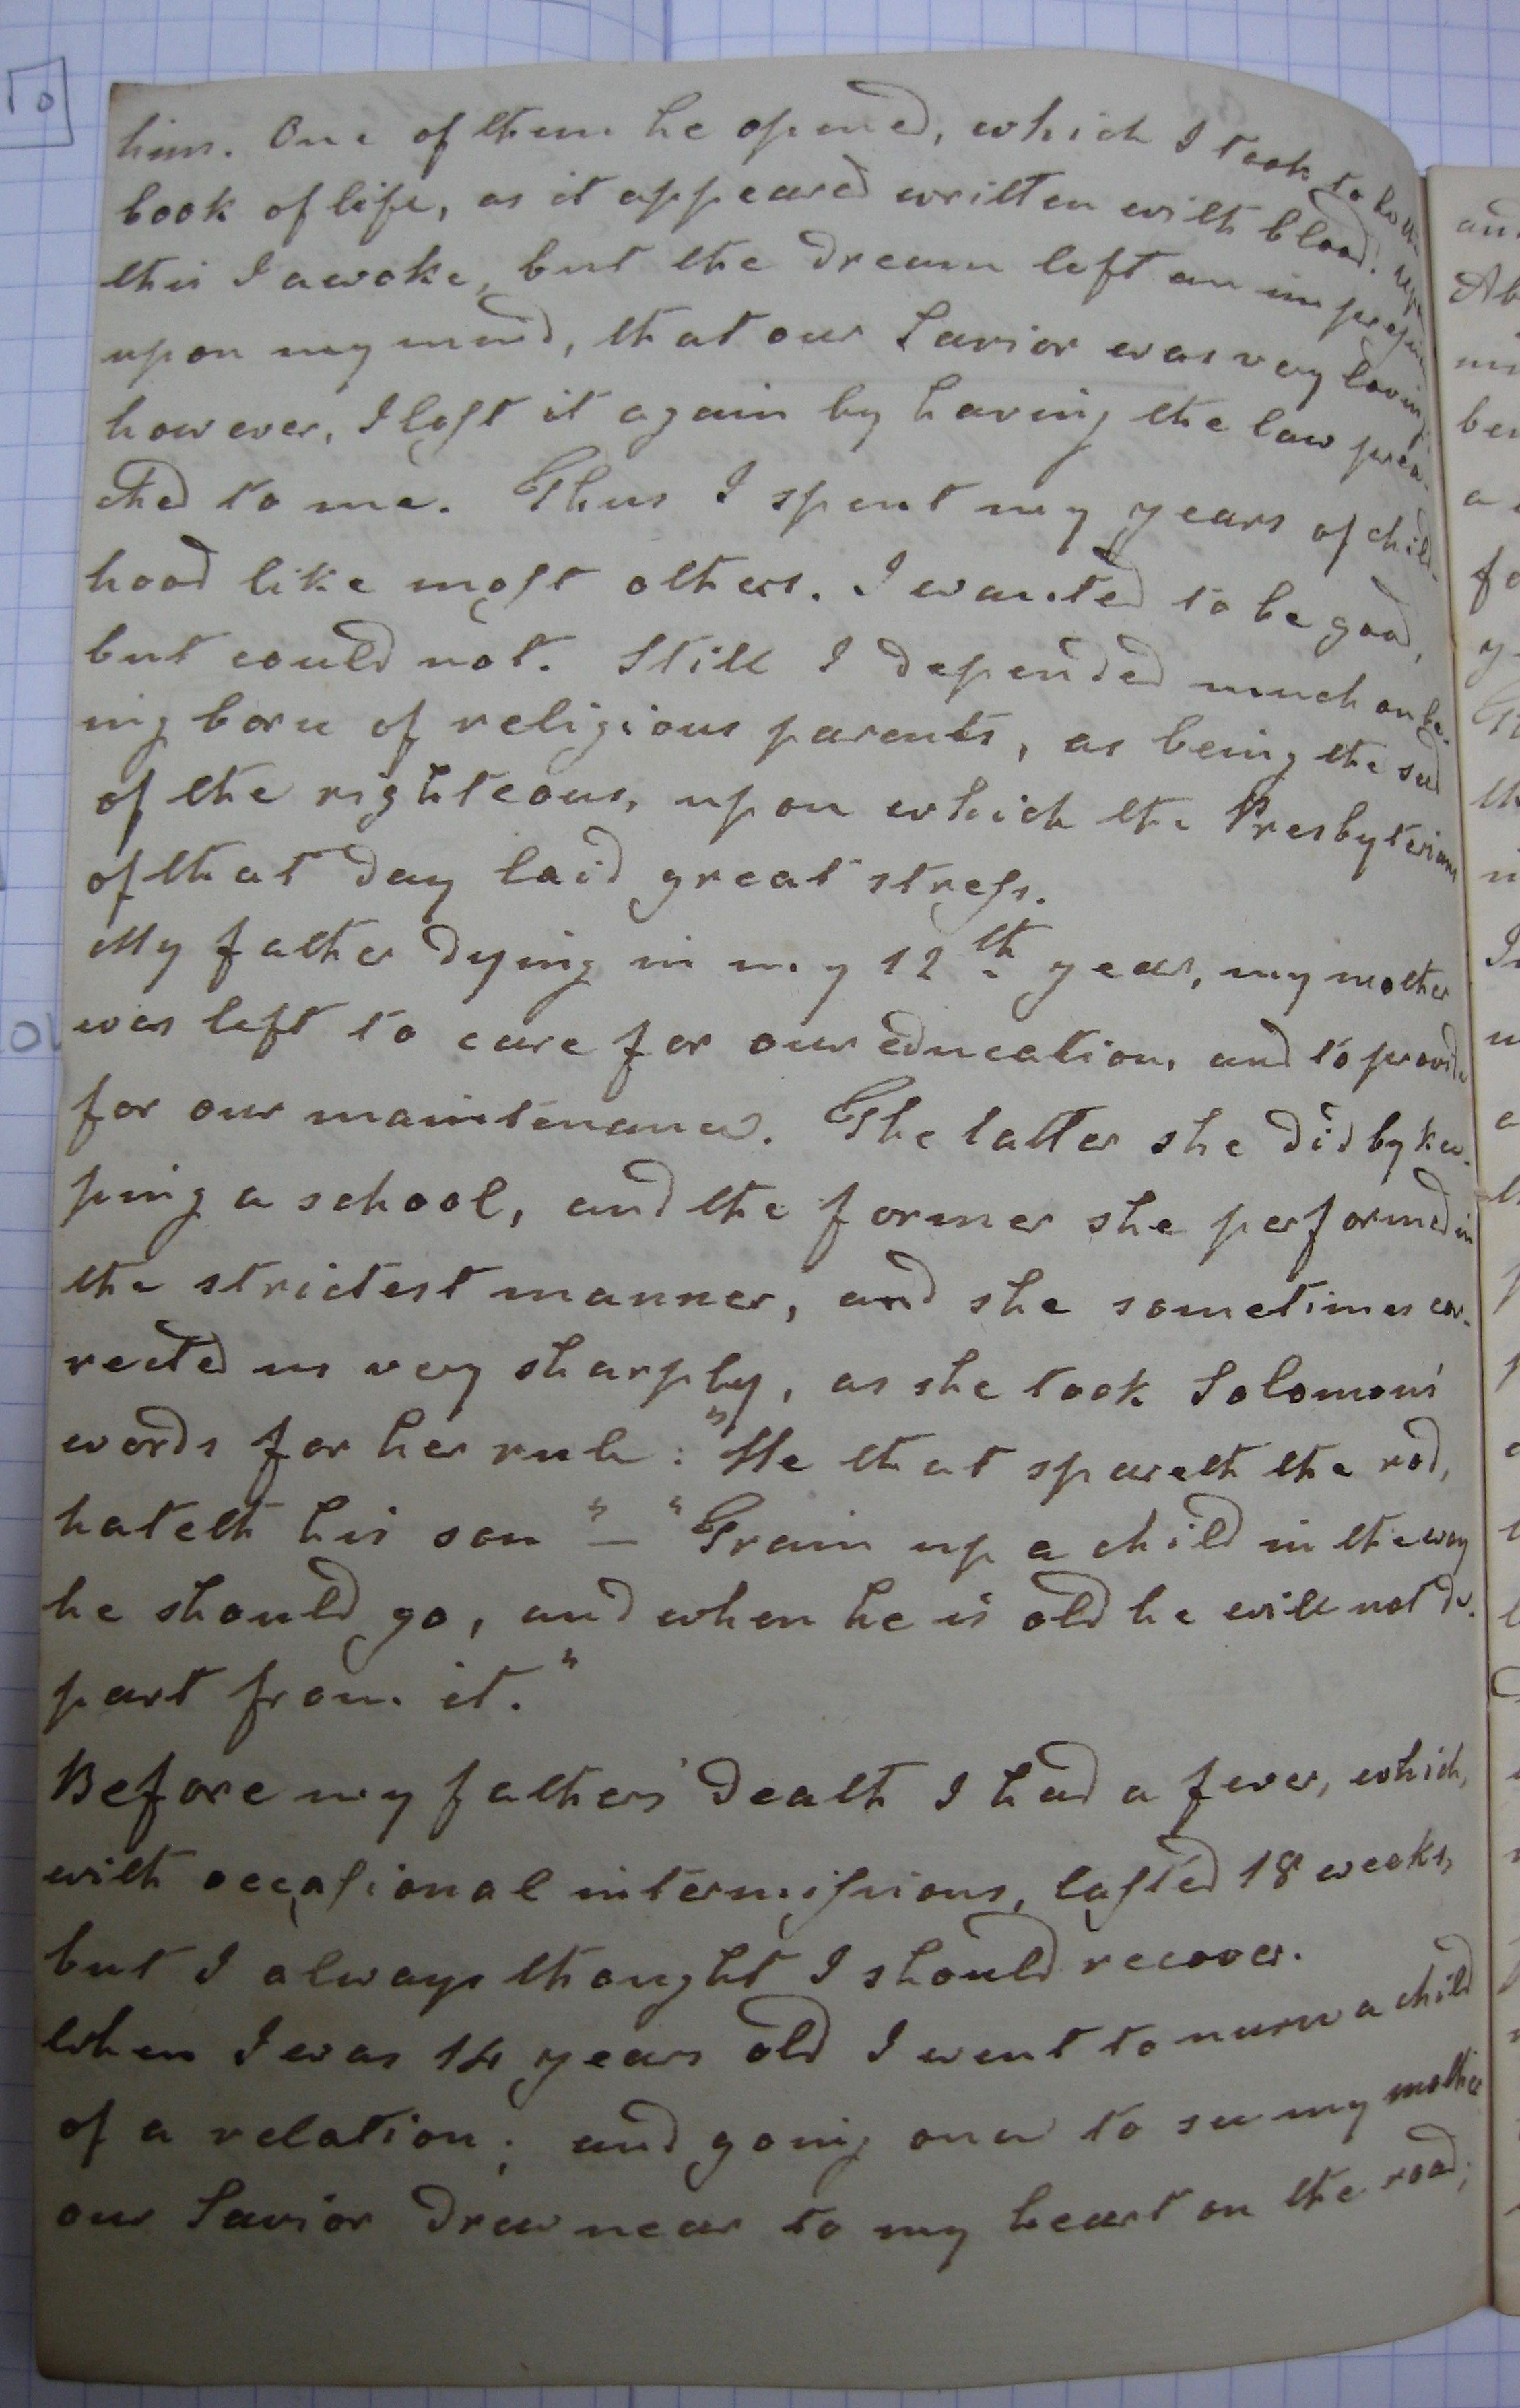 him. One of them he opened, which I took to be the
book of life, as it appeared written with blood. Upon
this I awoke, but the dream left an impression
upon my mind, that our Savior was very loving;
however, I lost it again by having the law prea-
ched to me. Thus I spent my years of child-
hood like most others. I wanted to be good,
but could not. Still I depended much on be-
ing born of religious parents, as being the seed
of the righteous, upon which the Presbyterians
of that day laid great stress.
My father dying in my 12th year, my mother
was left to care for our education, and to provide
for our maintenance. The latter she did by kee-
ping a school, and the former she performed in
the strictest manner, and she sometimes cor-
rected us very sharply, as she took Solomon's
words for her rule: "He that spareth the rod,
hateth his son" — "Train up a child in the way
he should go, and when he is old he will not de-
part from it."
Before my fathers' death I had a fever, which,
with occasional intermissions, lasted 18 weeks,
but I always thought I should recover.
When I was 14 years old I went to nurse a child
of a relation; and going once to see my mother
our Savior drew near to my heart on the road;